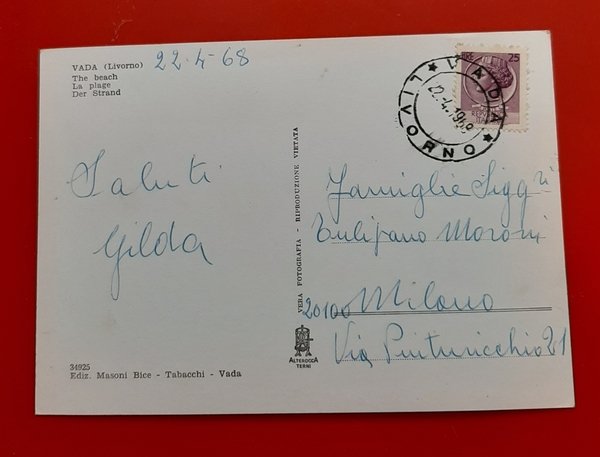 VADA (Livorno) 22-4-68
The beach
La plage
Der Strand
Saluti
Gilda
34925
Ediz. Masoni Bice - Tabacchi - Vada
VERA FOTOGRAFIA - RIPRODUZIONE VIETATA
ALTEROCCA
TERNI
25
★ VADA ★ LIVORNO
22.4.1968
Famiglie Sigg.ri
Tulipano Moroni
20100 Milano
Via Pinturicchio 21